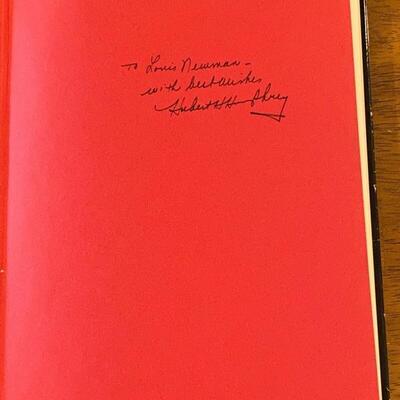 To Louis Newman -
with best wishes
Hubert H Humphrey